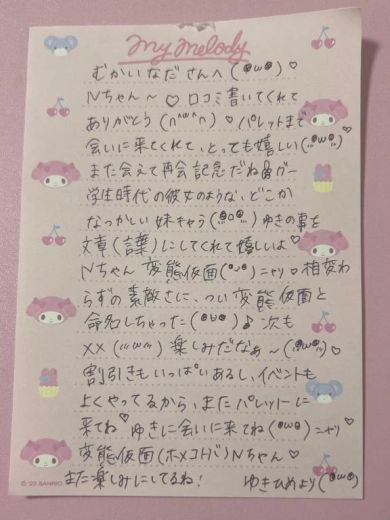 My Melody
むかいなださんへ(°ω°)♡
Nちゃん〜♡口コミ書いてくれて
ありがとう(∩^ω^∩)♡パレットまで
会いに来てくれて、とっても嬉しい(°ω°)♡
また会えて再会記念だね
学生時代の彼女のような、どこか
なつかしい妹キャラ(°o°)ゆきの事を
文章(言葉)にしてくれて嬉しいよ♡
Nちゃん 変態仮面(°ᴗ°)ニヤリ♡相変わ
らずの素敵さに、つい変態仮面と
命名しちゃった(°ω°)♪次も
××(°ω°)楽しみだなぁ〜(°ω°)♡
割引きもいっぱいあるし、イベントも
よくやってるから、またパレットに
来てね♡ゆきに会いに来てね(°ω°)ニヤリ
変態仮面(ホメコトバ)Nちゃん♡
また楽しみにしてるね! ゆきひめより(°ω°)
SANRIO